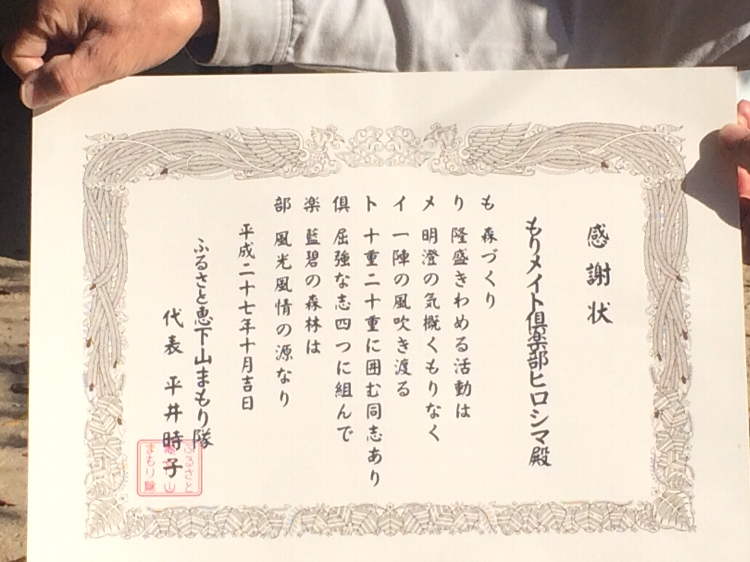 感謝状
もりメイト倶楽部ヒロシマ殿
も 森づくり
り 隆盛きわめる活動は
メ 明澄の気概くもりなく
イ 一陣の風吹き渡る
ト 十重二十重に囲む同志あり
倶 屈強な志四つに組んで
楽 藍碧の森林は
部 風光風情の源なり
平成二十七年十月吉日
ふるさと恵下山まもり隊
代表 平井時子
ふるさと
山
まもり隊